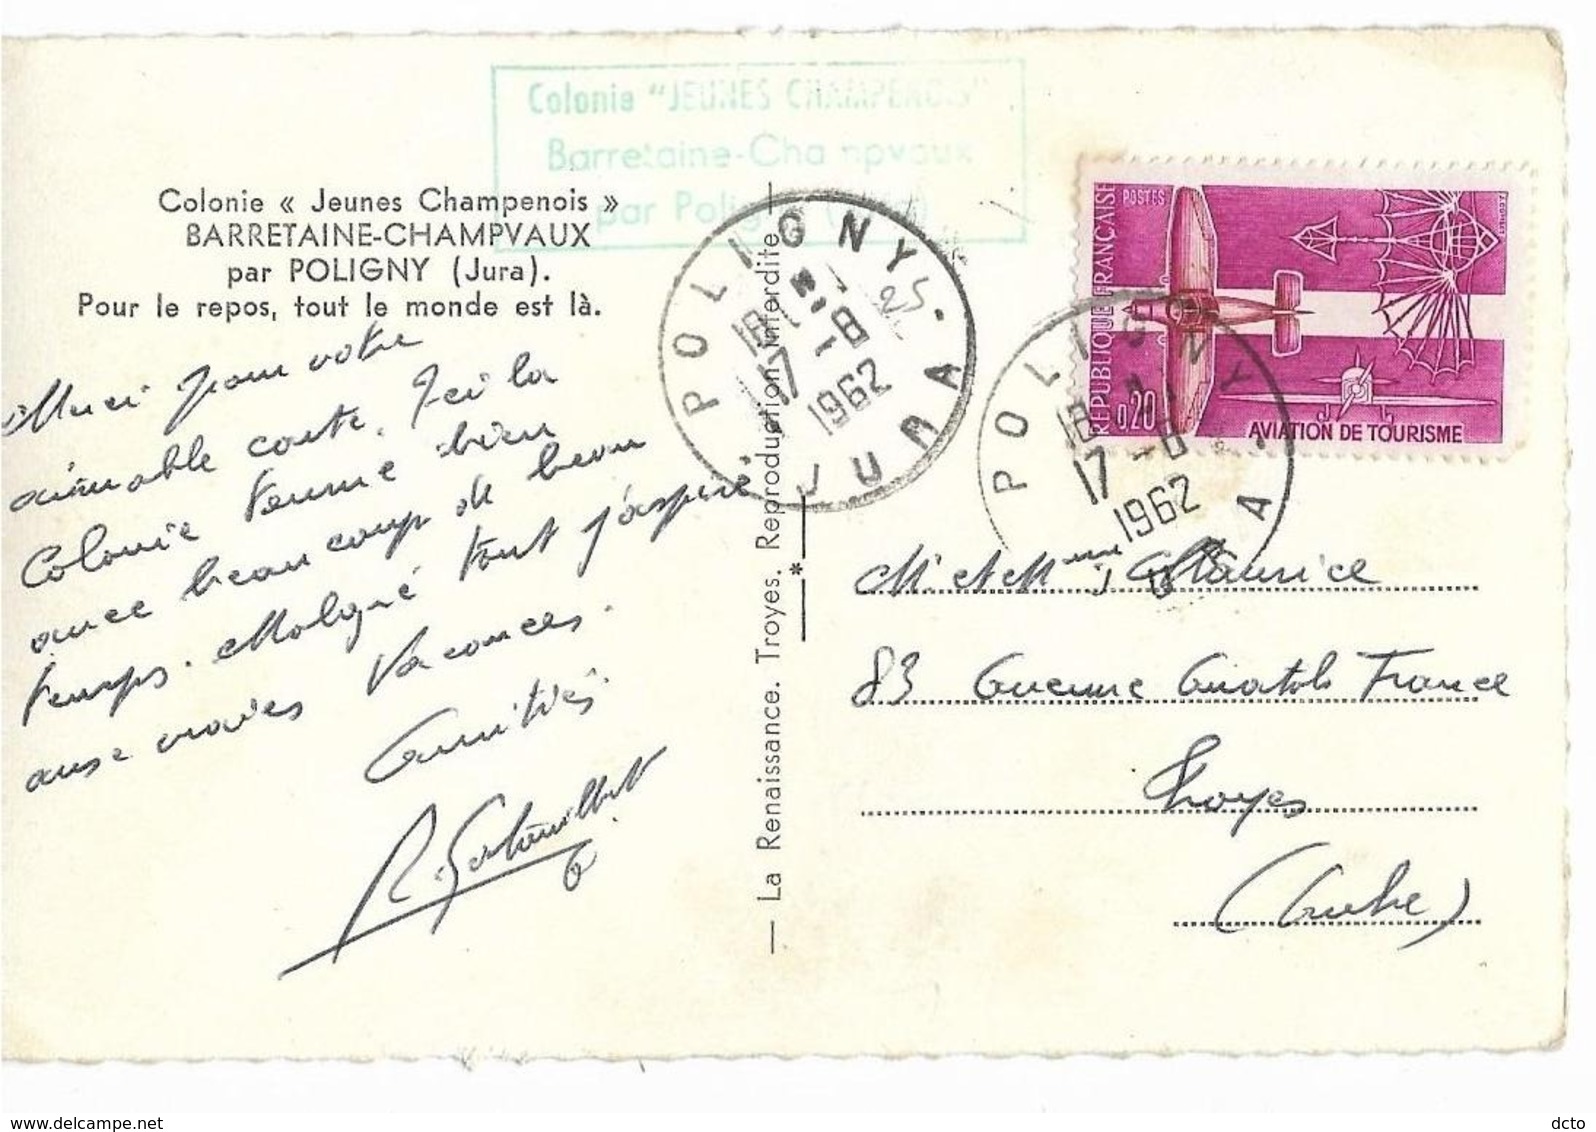 Colonie "JEUNES CHAMPENOIS"
Barretaine-Champvaux
par Poligny (Jura)
Colonie « Jeunes Champenois »
BARRETAINE-CHAMPVAUX
par POLIGNY (Jura).
Pour le repos, tout le monde est là.
Merci pour votre
aimable carte. Ici la
Colonie tourne bien
avec beaucoup de beau
temps. Malgré tout j'aspire
aux vraies vacances.
Amitiés.
— La Renaissance. Troyes. Reproduction interdite
POLIGNY
18
17 -8
1962
JURA
POLIGNY
18
17 -8
1962
JURA
RÉPUBLIQUE FRANÇAISE
POSTES
0,20
AVIATION DE TOURISME
M. et Mme Maurice
83 Avenue Anatole France
Troyes
(Aube)
www.delcampe.net
dcto